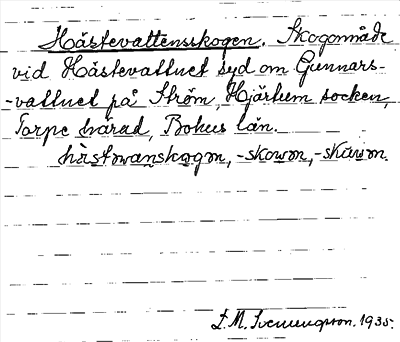 Hästevattensskogen. Skogområde
vid Hästevattnet syd om Gunnars-
-vattnet på Ström, Hjärtum socken,
Torpe härad, Bohus län.
hästwanskogen, -skowen, -skåwen.
D. M. Svenungsson. 1935.